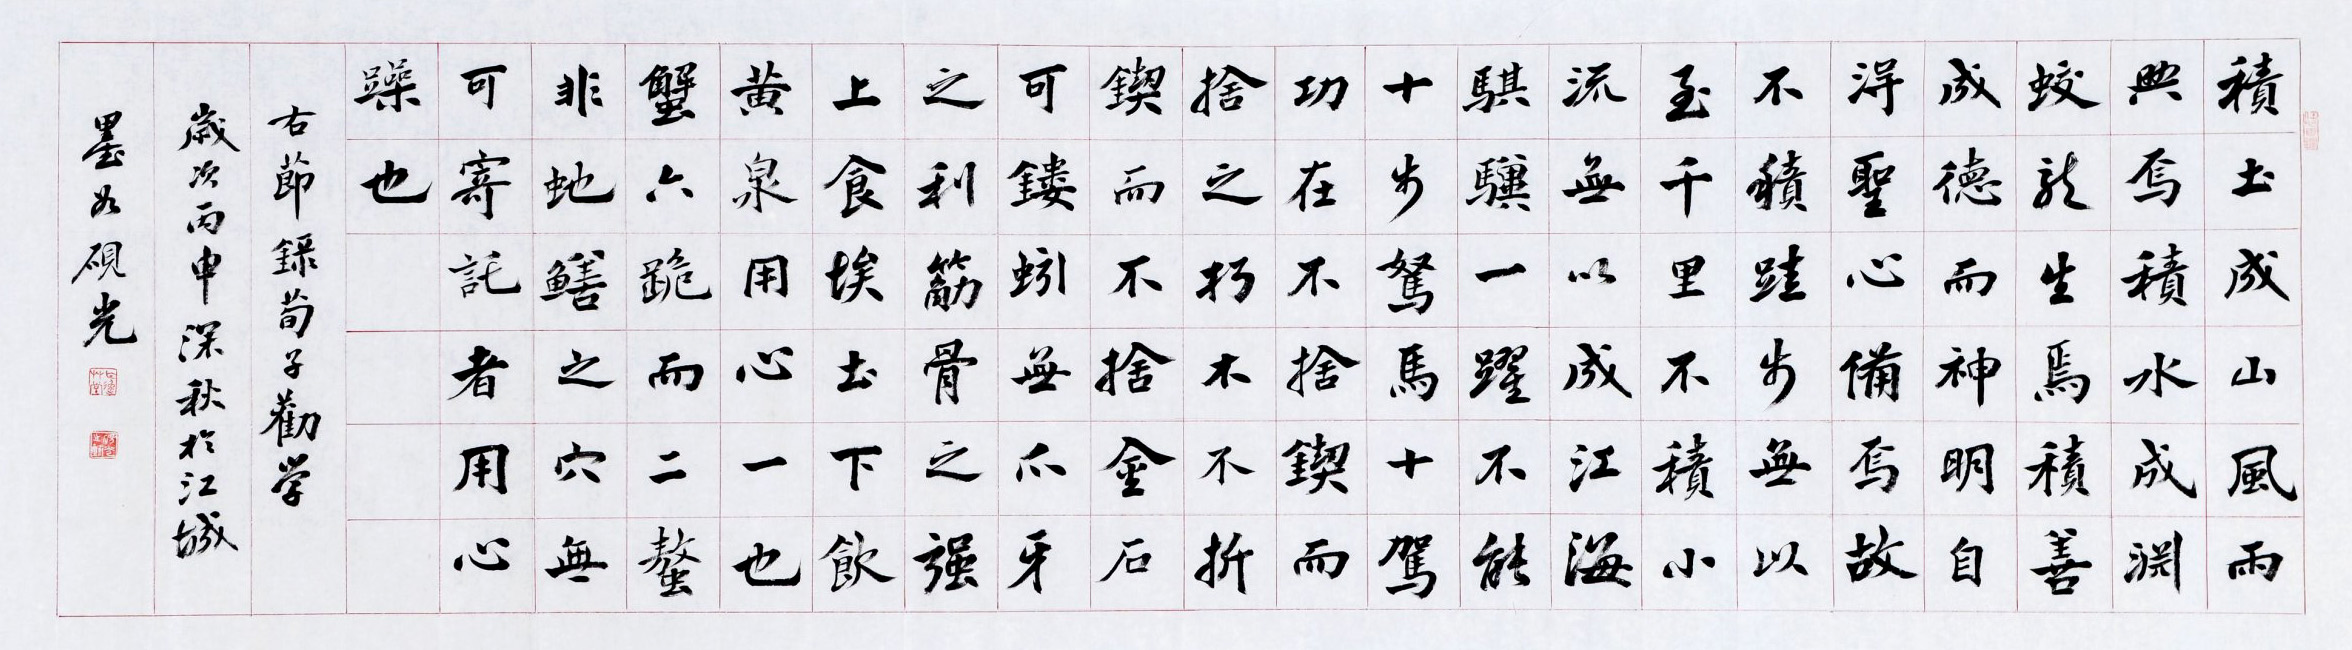 積土成山風雨
興焉積水成渊
蛟龍生焉積善
成德而神明自
得聖心備焉故
不積跬步無以
至千里不積小
流無以成江海
騏驥一躍不能
十步駑馬十駕
功在不捨鍥而
捨之朽木不折
鍥而不捨金石
可鏤蚓無爪牙
之利筋骨之强
上食埃土下飲
黄泉用心一也
蟹六跪而二螯
非虵鱔之穴無
可寄託者用心
躁也
右節録荀子勸学
歲次丙申深秋於江城
墨如硯光